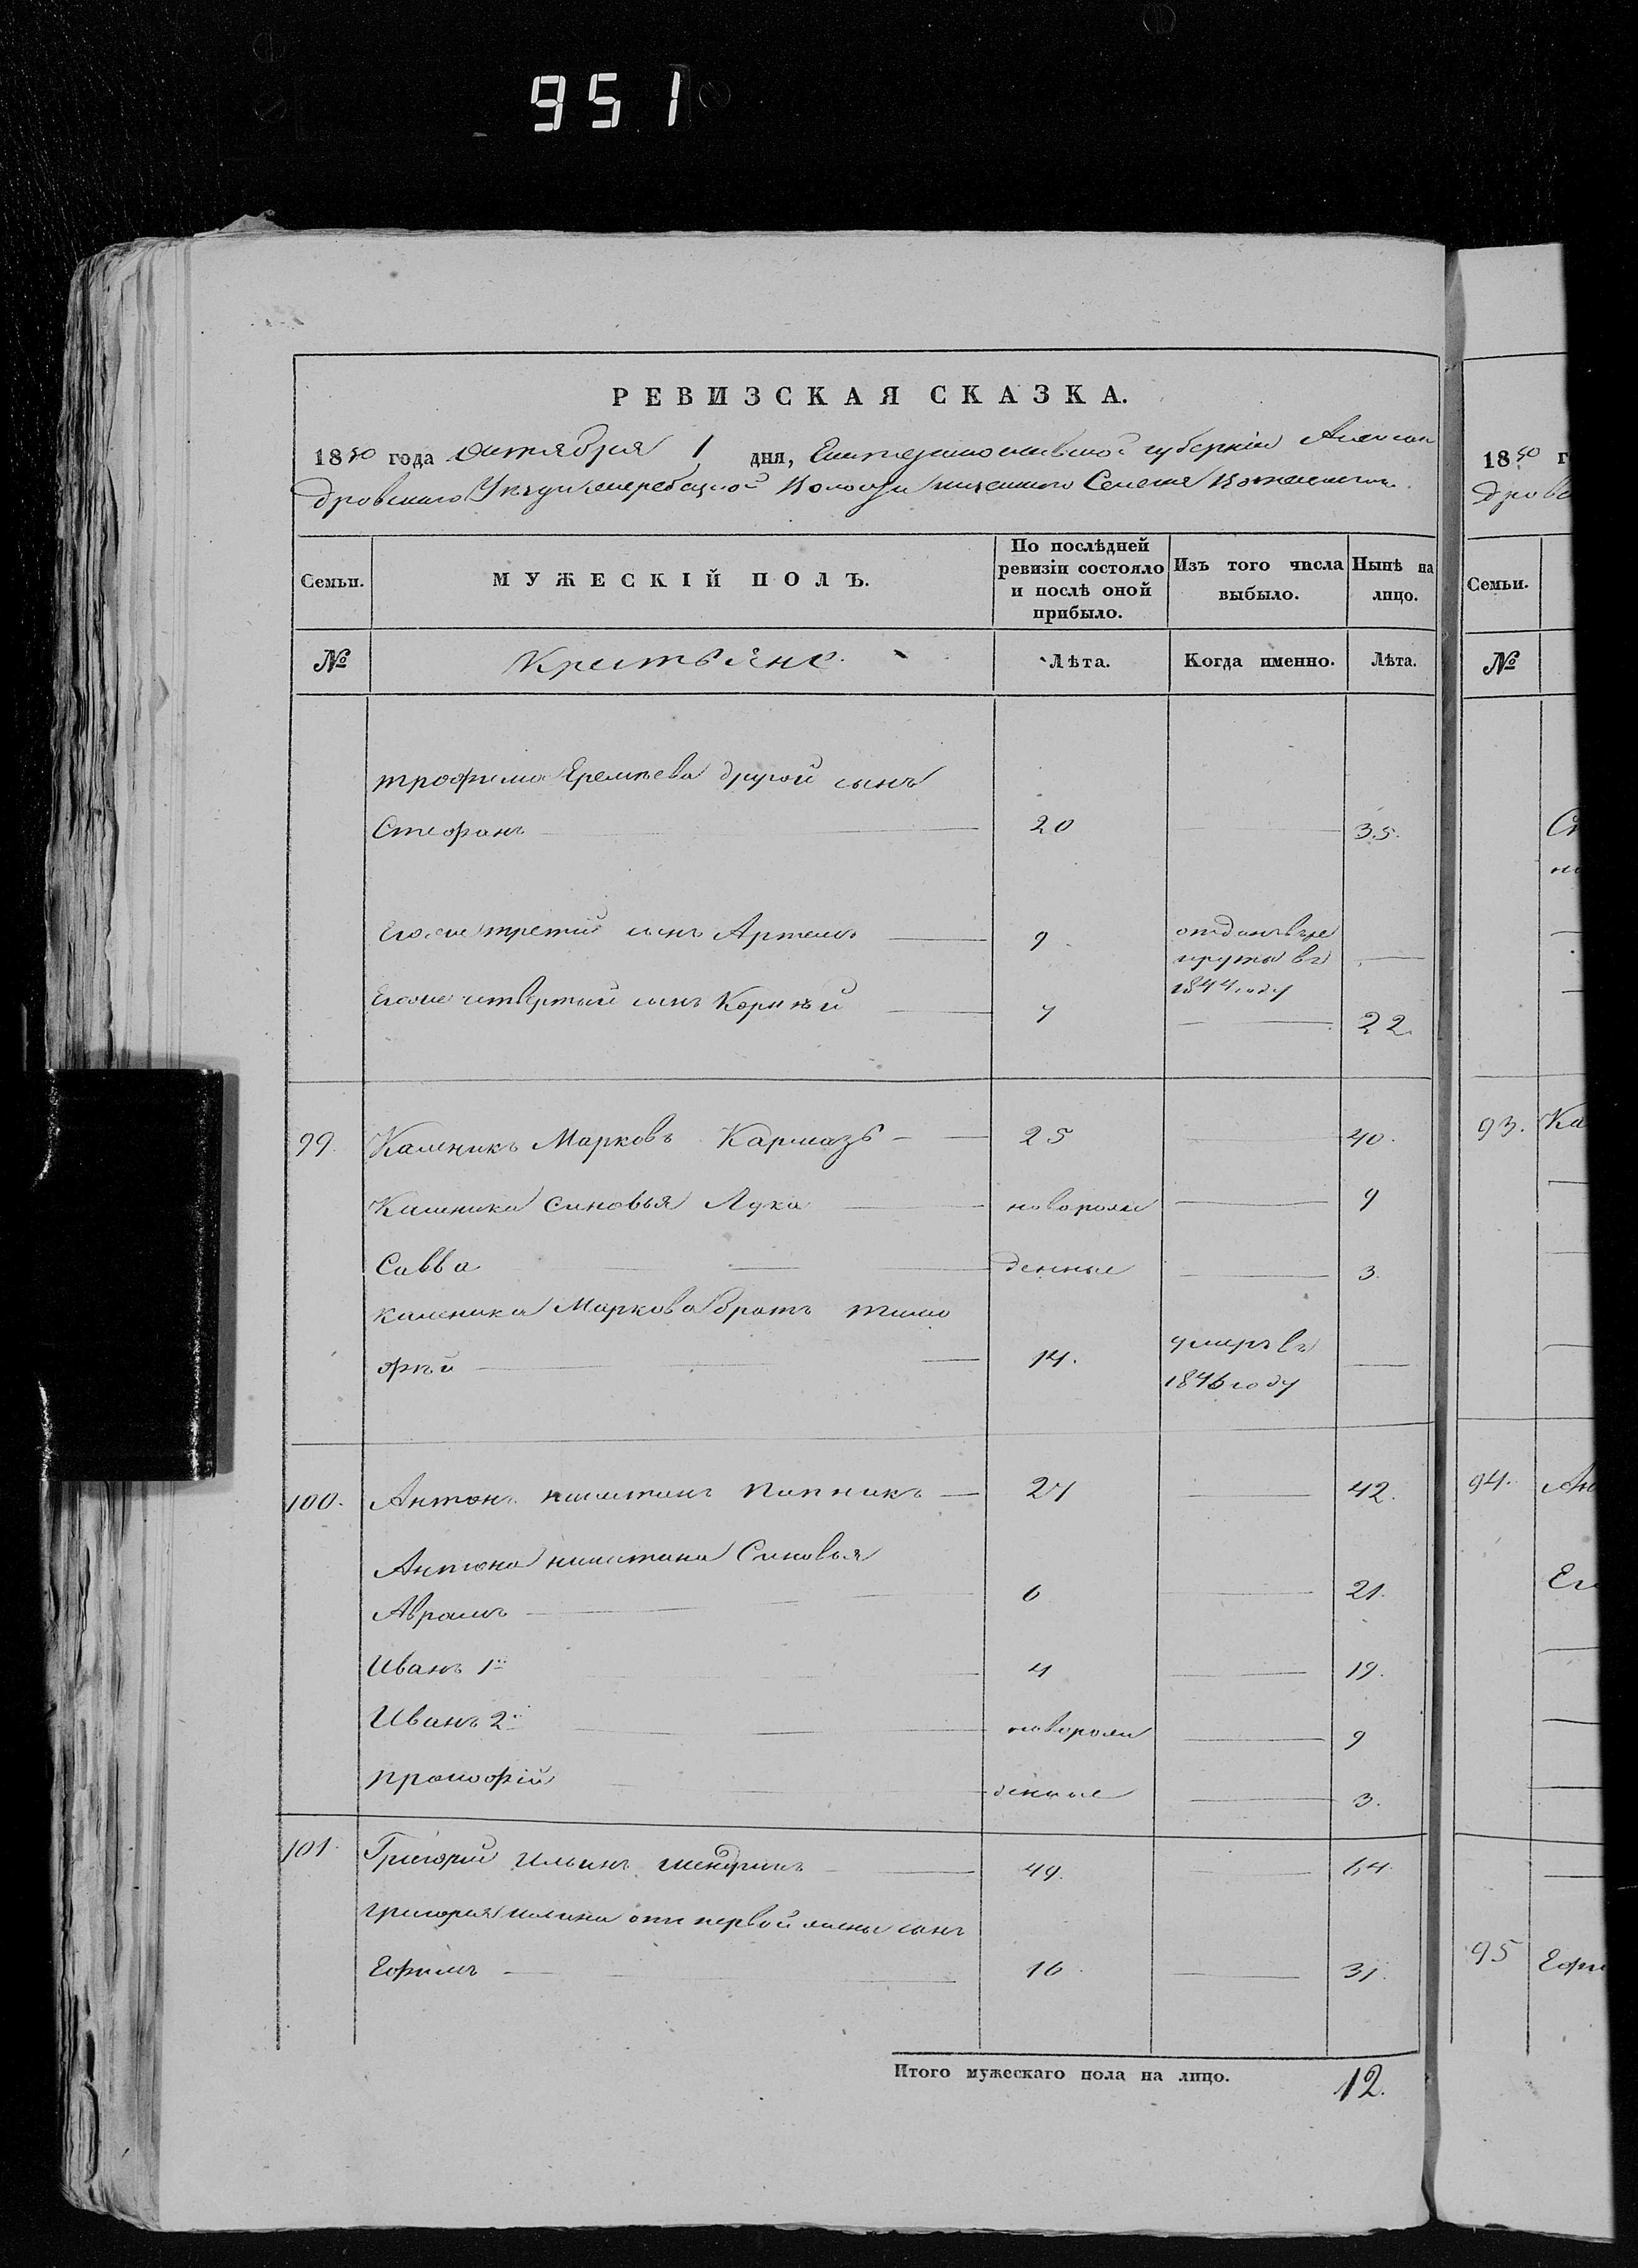 951
РЕВИЗСКАЯ СКАЗКА.
1850 года октября 1 дня, Екатеринославской губернiи Алексан
дровскаго Уѣзда жеребецкой Волости казеннаго Селенiя
Семьи.
МУЖЕСКIЙ ПОЛЪ.
По послѣдней ревизiи состояло и послѣ оной прибыло.
Изъ того числа выбыло.
Нынѣ на лицо.
№
Крестьяне.
Лѣта.
Когда именно.
Лѣта.
трофима Еремѣева другой сынъ
Стефанъ 20 35.
Егоже третiй сынъ Артемъ 9 отданъ въ ре
круты въ
1844 году
Егоже четвертый сынъ Корнѣй 7 22.
99. Каленикъ Марковъ Кармазъ 25 40.
Каленика Синовья Лука новорож 9
Савва денные 3.
Каленика Маркова братъ тимо
фѣй 14. умеръ въ
1846 году
100. Антонъ никитинъ Папникъ 27 42.
Антона никитина Синовья
Аврамъ 6 21.
Иванъ 1й 4 19.
Иванъ 2й новорож 9
прокофiй денные 3.
101. Григорiй Ильинъ 49. 64.
григорiя ильина отъ первой жены сынъ
Ефимъ 16. 31.
Итого мужескаго пола на лицо. 12.
1850 г
дровс
Семьи.
№
93. Ка
94. Ан
Ег
95 Ефи